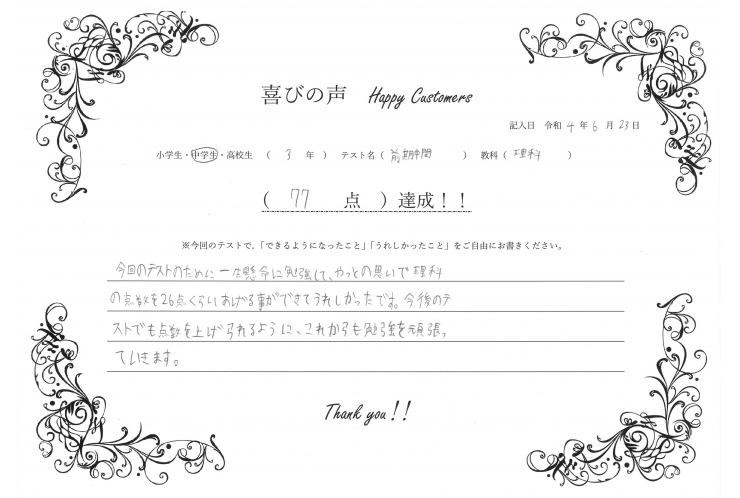 喜びの声 Happy Customers
記入日 令和 4 年 6 月 23 日
小学生・中学生・高校生 ( 3 年 ) テスト名 ( 前期中間 ) 教科 ( 理科 )
( 77 点 ) 達成！！
※今回のテストで、「できるようになったこと」「うれしかったこと」をご自由にお書きください。
今回のテストのために一生懸命に勉強して、やっとの思いで理科
の点数を26点くらいあげる事ができてうれしかったです。今後のテ
ストでも点数を上げられるように、これからも勉強を頑張っ
ていきます。
Thank you!!